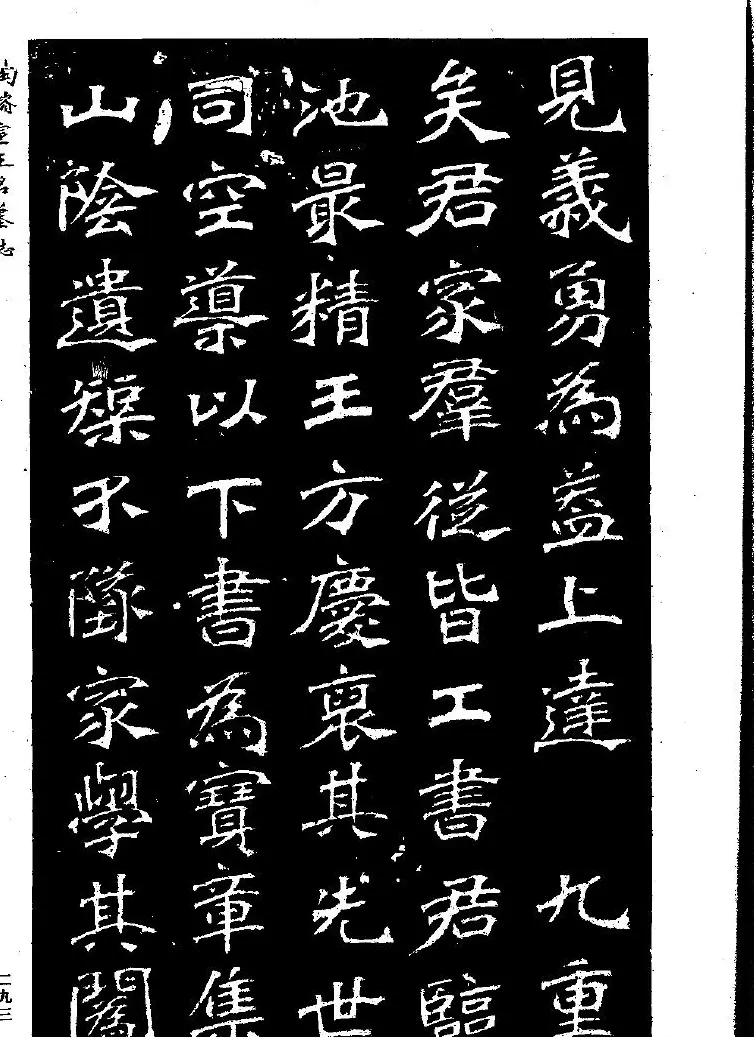 見義勇為益上達 九重
矣君家羣從皆工書君臨
池最精王方慶裒其先世
司空導以下書為寶章集
山陰遺榘不隊家學其闔
陶濬宣王君墓志
二九三